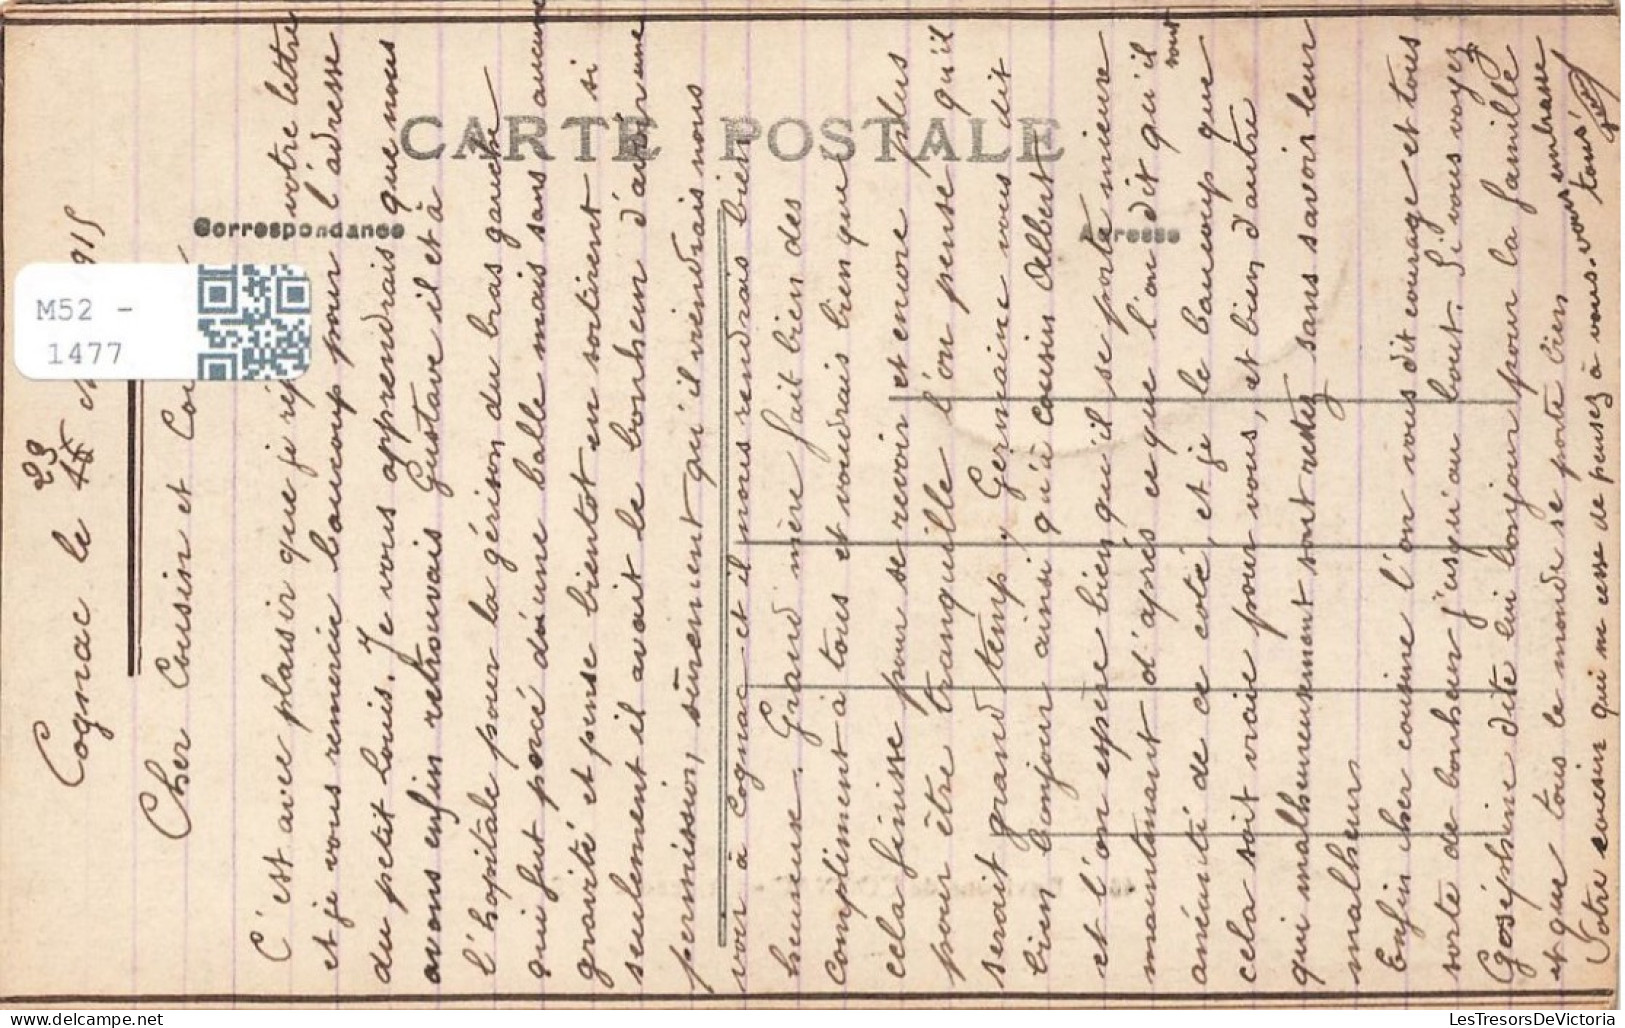 CARTE POSTALE
Correspondance
Adresse
M52 -
1477
Cognac le 23 1915
Cher Cousin et
C'est avec plaisir que je votre lettre
et je vous remercie beaucoup pour l'adresse
du petit Louis. Je vous apprendrais que nous
avons enfin retrouvais Gustave il et à
l'hopitale pour la gérison du bras gauche
qui fut percé d'une balle mais sans aucune
gravité et pense bientot en sortirent si
seulement il avait le bonheur d'avoir une
permission, sûrement qu'il viendrais nous
voir à Cognac et il nous rendrais bien
heureux. Grand mère fait bien des
compliment à tous et voudrais bien que
cela finisse pour se revoir et encore plus
pour être tranquille l'on pense qu'il
serait grand temp, Germaine vous dit
bien bonjour ainsi qu'à cousin Albert
et l'on espère bien qu'il se porte mieux
maintenant d'après ce que l'on dit qu'il sont
anéanti de ce coté, et je le beaucoup que
cela soit vraie pour vous, et bien d'autre
qui malheureusement sont restez sans savoir leur
malheur
Enfin cher cousine l'on vous dit courage et tous
sorte de bonheur j'usqu'au bout. Si vous voyez
Goséphine dite lui bonjour pour la famille
et que tous le monde se porte bien
Votre cousin qui ne cesse de pensez à vous. vous embrasse
tous
LesTresorsDeVictoria